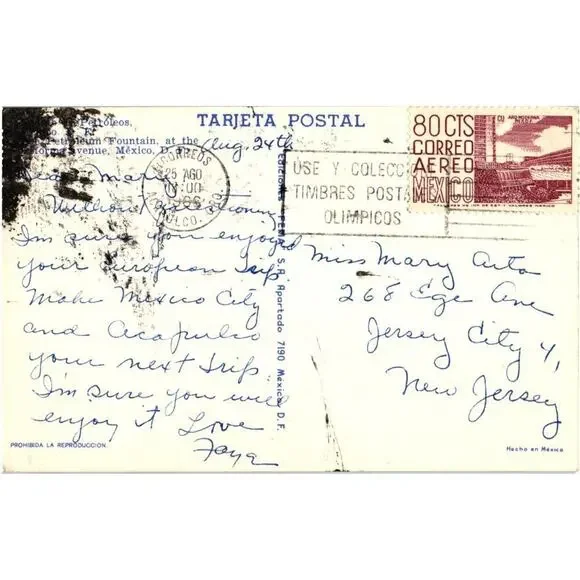 TARJETA POSTAL
Petróleos,
Petroleum Fountain, at the
Avenue, México, D. F.
Aug. 24th
Dear Mary
Million
I'm sure you enjoyed
your european trip
Make Mexico City
and Acapulco
your next trip
I'm sure you will
enjoy it Love
Faye
PROHIBIDA LA REPRODUCCION
S. A. Apartado 7190 México D. F.
CORREOS
25 AGO
GRO.
USE Y COLECC
TIMBRES POSTA
OLIMPICOS
80 CTS
CORREO
AEREO
MEXICO
Miss Mary
268 Ege Ave
Jersey City 4,
New Jersey
Hecho en México